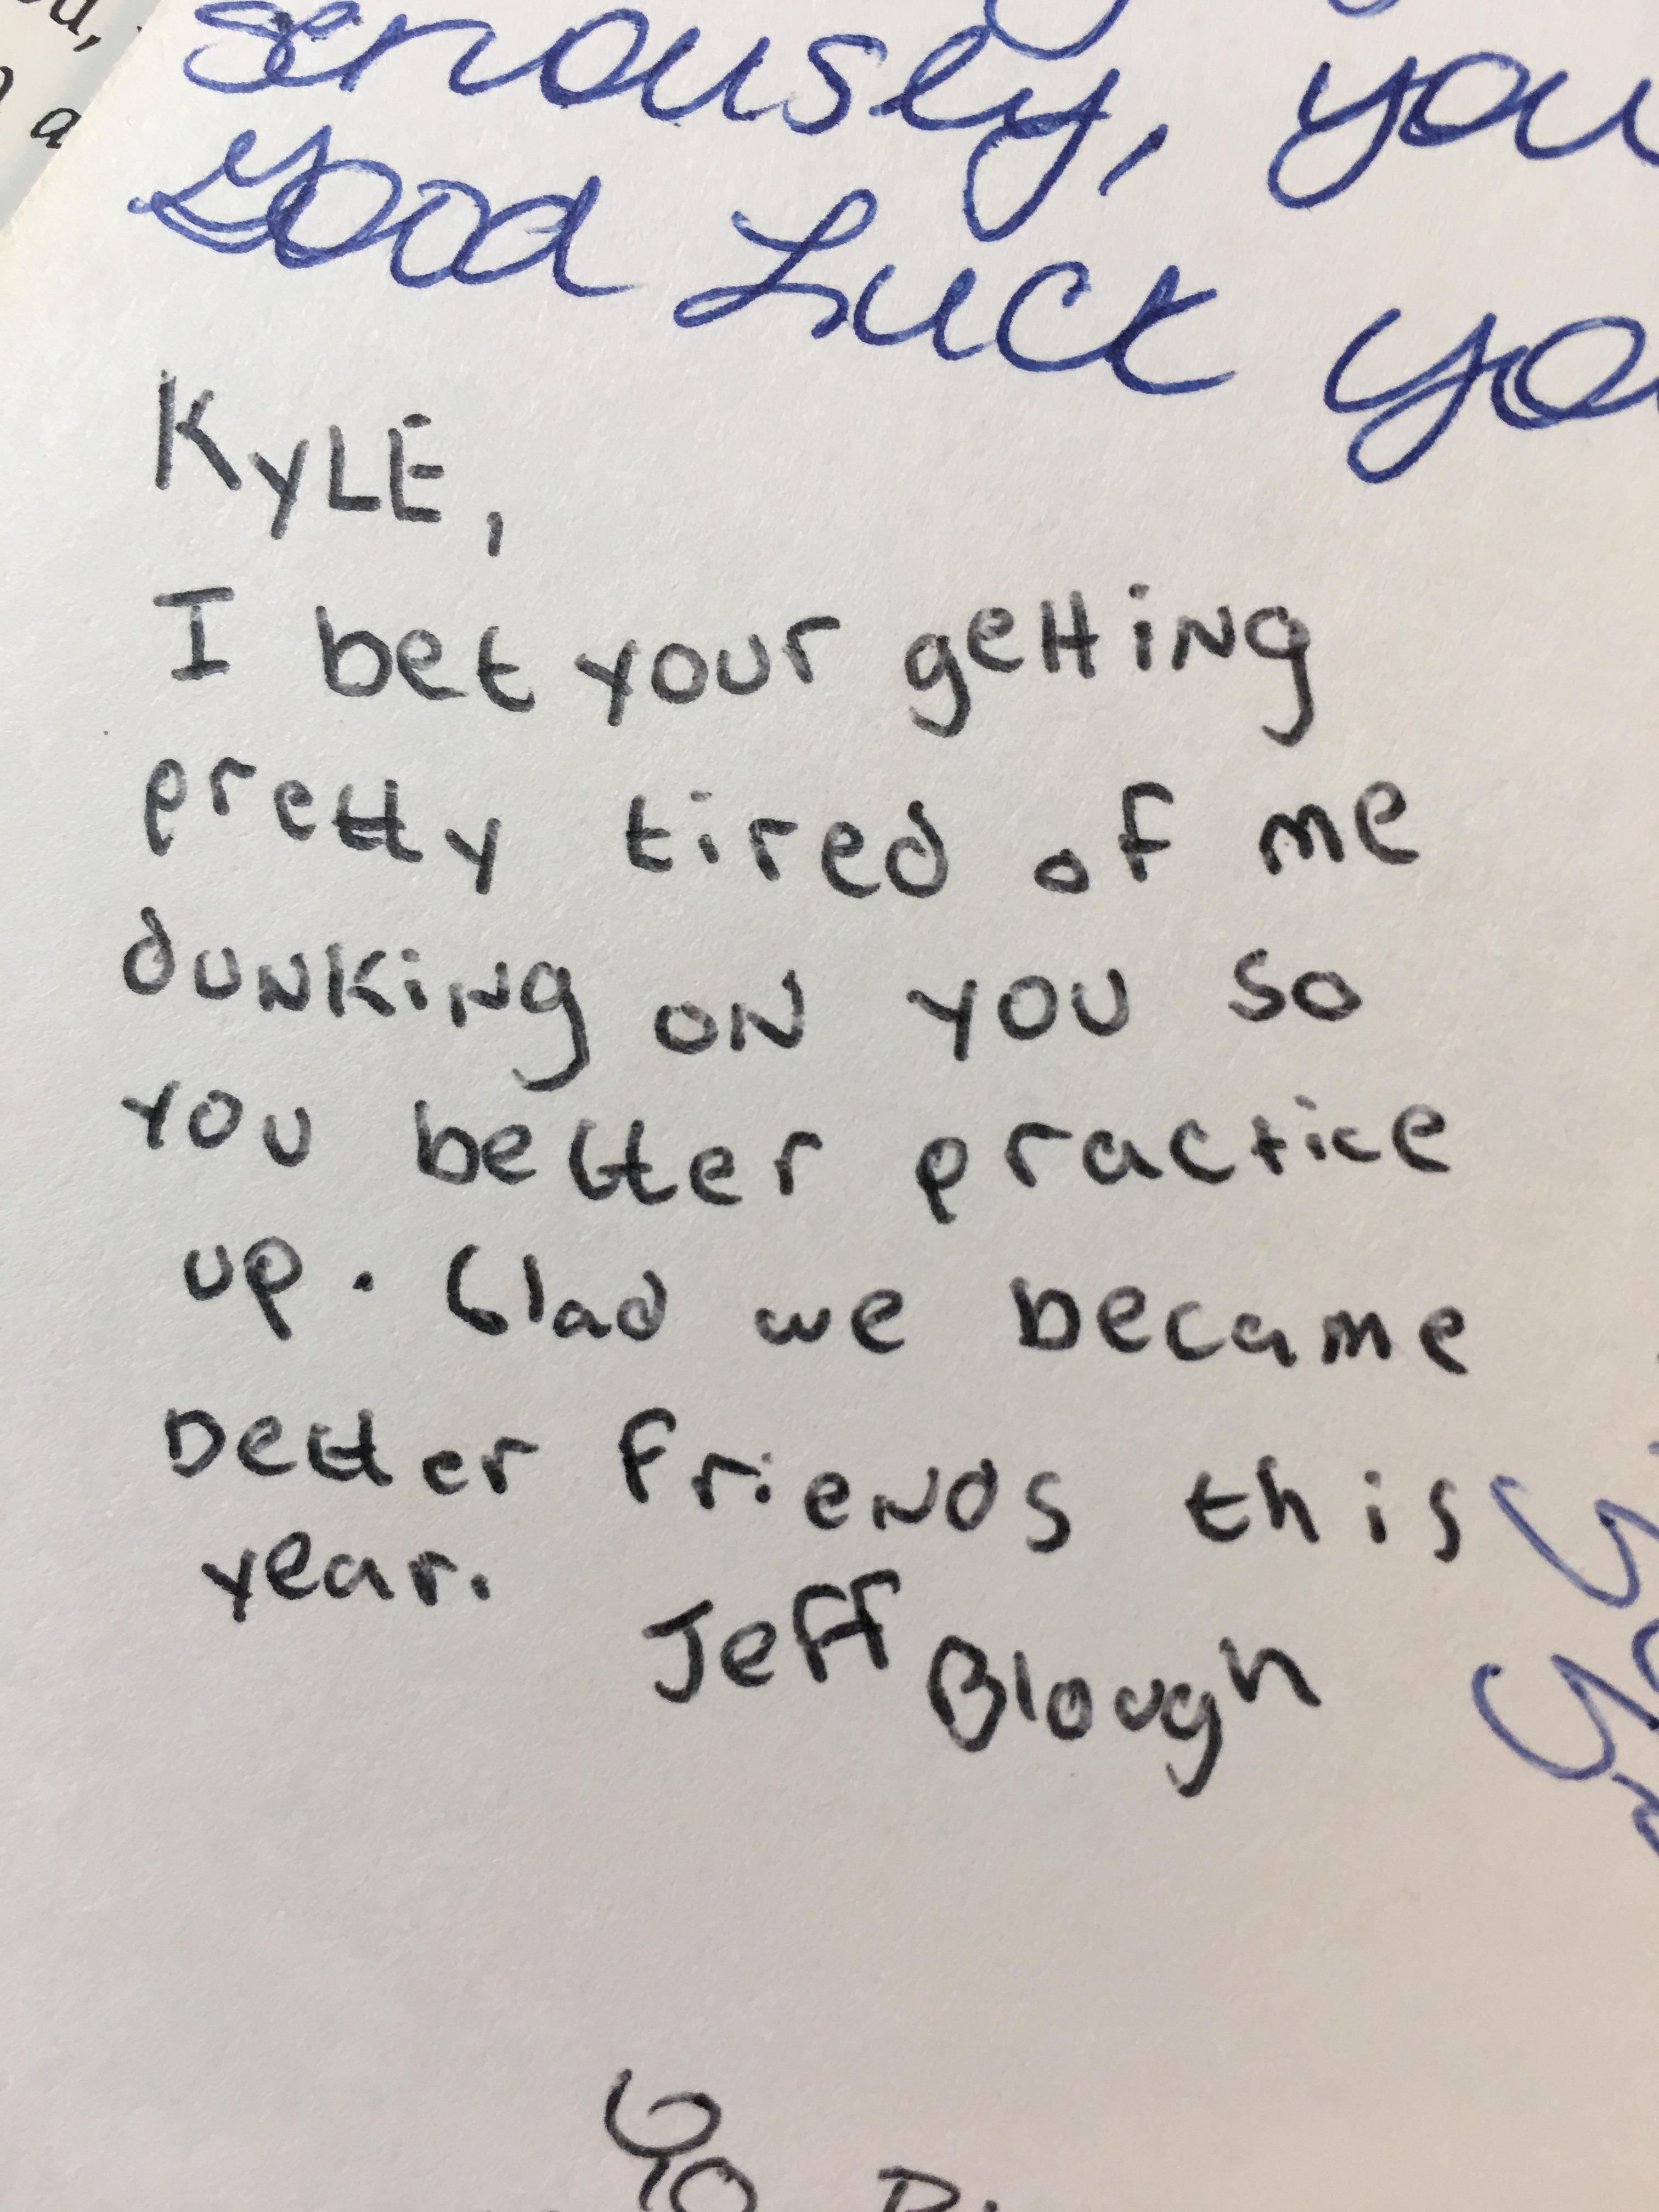 seriously, you
good Luck
KyLE,
I bet your getting
pretty tired of me
dunking on you so
you better practice
up. Glad we became
better friends this
year.
Jeff Blough